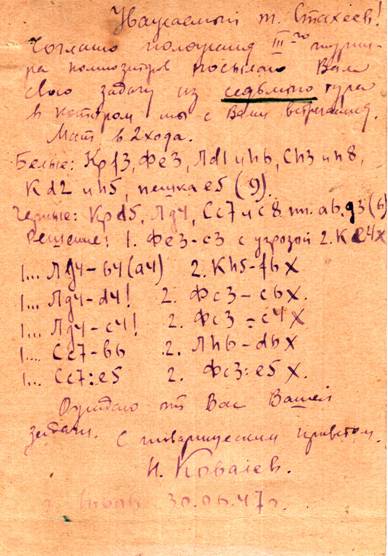 Уважаемый т. Стахеев.
Согласно положения III го турни-
ра композиторов посылаю Вам
свою задачу из седьмого тура
в котором мы с Вами встречаемся.
Мат в 2 хода.
Белые: Крf3, Фe3, Лd1 и h6, Сh3 и h8,
Кd2 и h5, пешка e5 (9).
Черные: Крd5, Лg4, Сc7 и c8 пп. a6, g3 (6)
Решение: 1. Фe3-c3 с угрозой 2. К e4X
1... Лg4-b4(a4) 2. Кh5-f6X
1... Лg4-d4! 2. Фc3-c6X.
1... Лg4-c4! 2. Фc3-c4X
1... Сc7-b6 2. Лh6-d6X
1... Сc7:e5 2. Фc3:e5X.
Ожидаю от Вас Вашей
задачи. С товарищеским приветом.
Н. Ковалев.
30.06.47г.